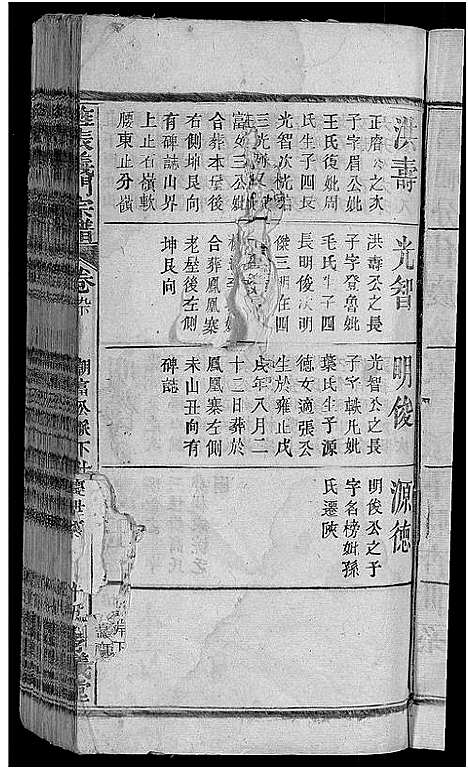 洪壽
正府公之次
子字眉公妣
王氏復妣周
氏生子四長
光智次光
三光
富女三公妣
合葬本屋後
右側坤艮向
有碑誌山界
上止石嶺軟
腰東止分嶺
光智
洪壽公之長
子字登魯妣
毛氏生子四
長明俊次明
傑三明在四
合葬鳳凰寨
老塋後左側
坤艮向
明俊
光智公之長
子字軼凡妣
葉氏生子源
德女適張公
生於雍正戊
戌年八月二
十二日葬於
鳳凰寨左側
未山丑向有
碑誌
源德
明俊公之子
字名榜妣孫
氏遷陝
張義門宗譜
卷